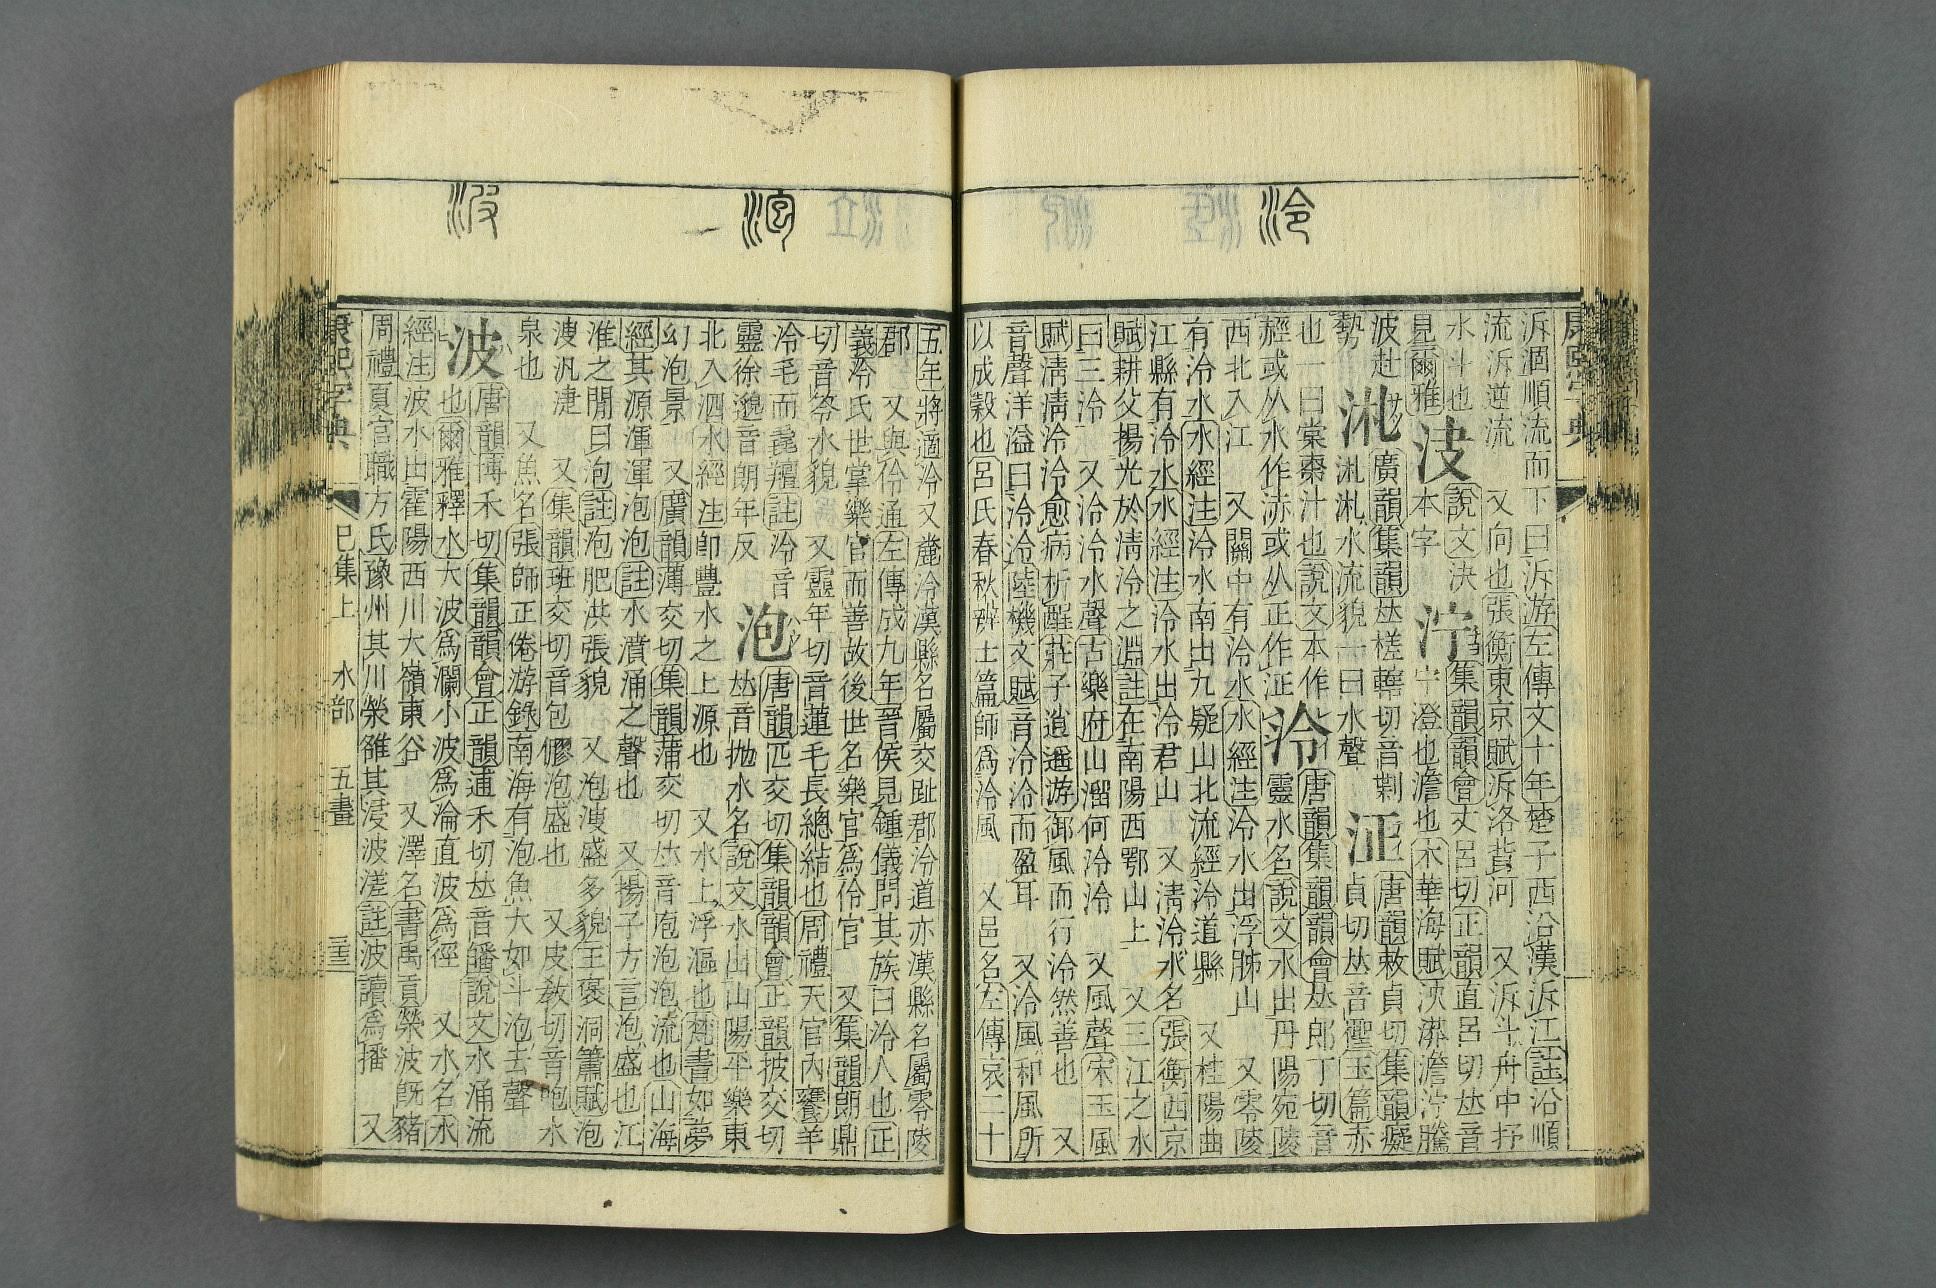 泠
泝洄順流而下曰泝游左傳文十年楚子西沿漢泝江註沿順
流泝逆流　又向也張衡東京賦泝洛背河　又泝斗舟中抒
水斗也
見爾雅
決說文決
本字
泞集韻韻會丈呂切正韻直呂切𠀤音
宁澄也澹也木華海賦泱漭澹泞騰
波赴
勢
汃廣韻集韻𠀤槎轄切音
汃汃水流貌一曰水聲
泟唐韻敕貞切集韻癡
貞切𠀤音聖玉篇赤
也一曰棠棗汁也說文本作
經或从水作泲或从正作泟
泠唐韻集韻韻會𠀤郎丁切音
靈水名說文水出丹陽宛陵
西北入江　又關中有泠水水經注泠水出浮胏山　又零陵
有泠水水經注泠水南出九疑山北流經泠道縣　又桂陽曲
江縣有泠水水經注泠水出泠君山　又淸泠水名張衡西京
賦耕父揚光於淸泠之淵註在南陽西鄂山上　又三江之水
曰三泠　又泠泠水聲古樂府山溜何泠泠　又風聲宋玉風
賦淸淸泠泠愈病析酲莊子逍遙游御風而行泠然善也　又
音聲洋溢曰泠泠陸機文賦音泠泠而盈耳　又泠風和風所
以成穀也呂氏春秋辨土篇師爲泠風　又邑名左傳哀二十
泡
波
五年將適泠又麊泠漢縣名屬交趾郡泠道亦漢縣名屬零陵
郡　又與伶通左傳成九年晉侯見鍾儀問其族曰泠人也正
義泠氏世掌樂官而善故後世名樂官爲伶官　又集韻朗鼎
切音笭水貌　又靈年切音蓮毛長總結也周禮天官內饔羊
泠毛而毳羶註泠音
靈徐邈音朗年反
泡唐韻匹交切集韻韻會正韻披交切
𠀤音拋水名說文水出山陽平樂東
北入泗水經注卽豐水之上源也　又水上浮漚也梵書如夢
幻泡景　又廣韻薄交切集韻蒲交切𠀤音庖泡泡流也山海
經其源渾渾泡泡註水濆涌之聲也　又揚子方言泡盛也江
淮之閒曰泡註泡肥洪張貌　又泡溲盛多貌王褒洞簫賦泡
溲汎㳿　又集韻班交切音包膠泡盛也　又皮敎切音皰水
泉也　又魚名張師正倦游錄南海有泡魚大如斗泡去聲
波唐韻博禾切集韻韻會正韻逋禾切𠀤音皤說文水涌流
也爾雅釋水大波爲瀾小波爲淪直波爲徑　又水名水
經注波水出霍陽西川大嶺東谷　又澤名書禹貢滎波旣豬
周禮夏官職方氏豫州其川滎雒其浸波溠註波讀爲播　又
康熙字典　巳集上　水部　五畫
康熙字典